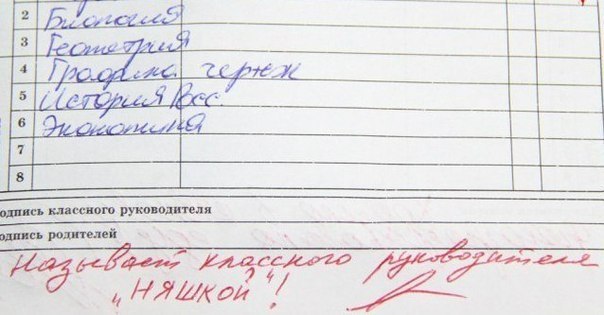 2 Биология
3 Геометрия
4 Графика чертж
5 История Росс.
6 Экономика
7
8
одпись классного руководителя
одпись родителей
Называет классного руководителя
"НЯШКОЙ"!